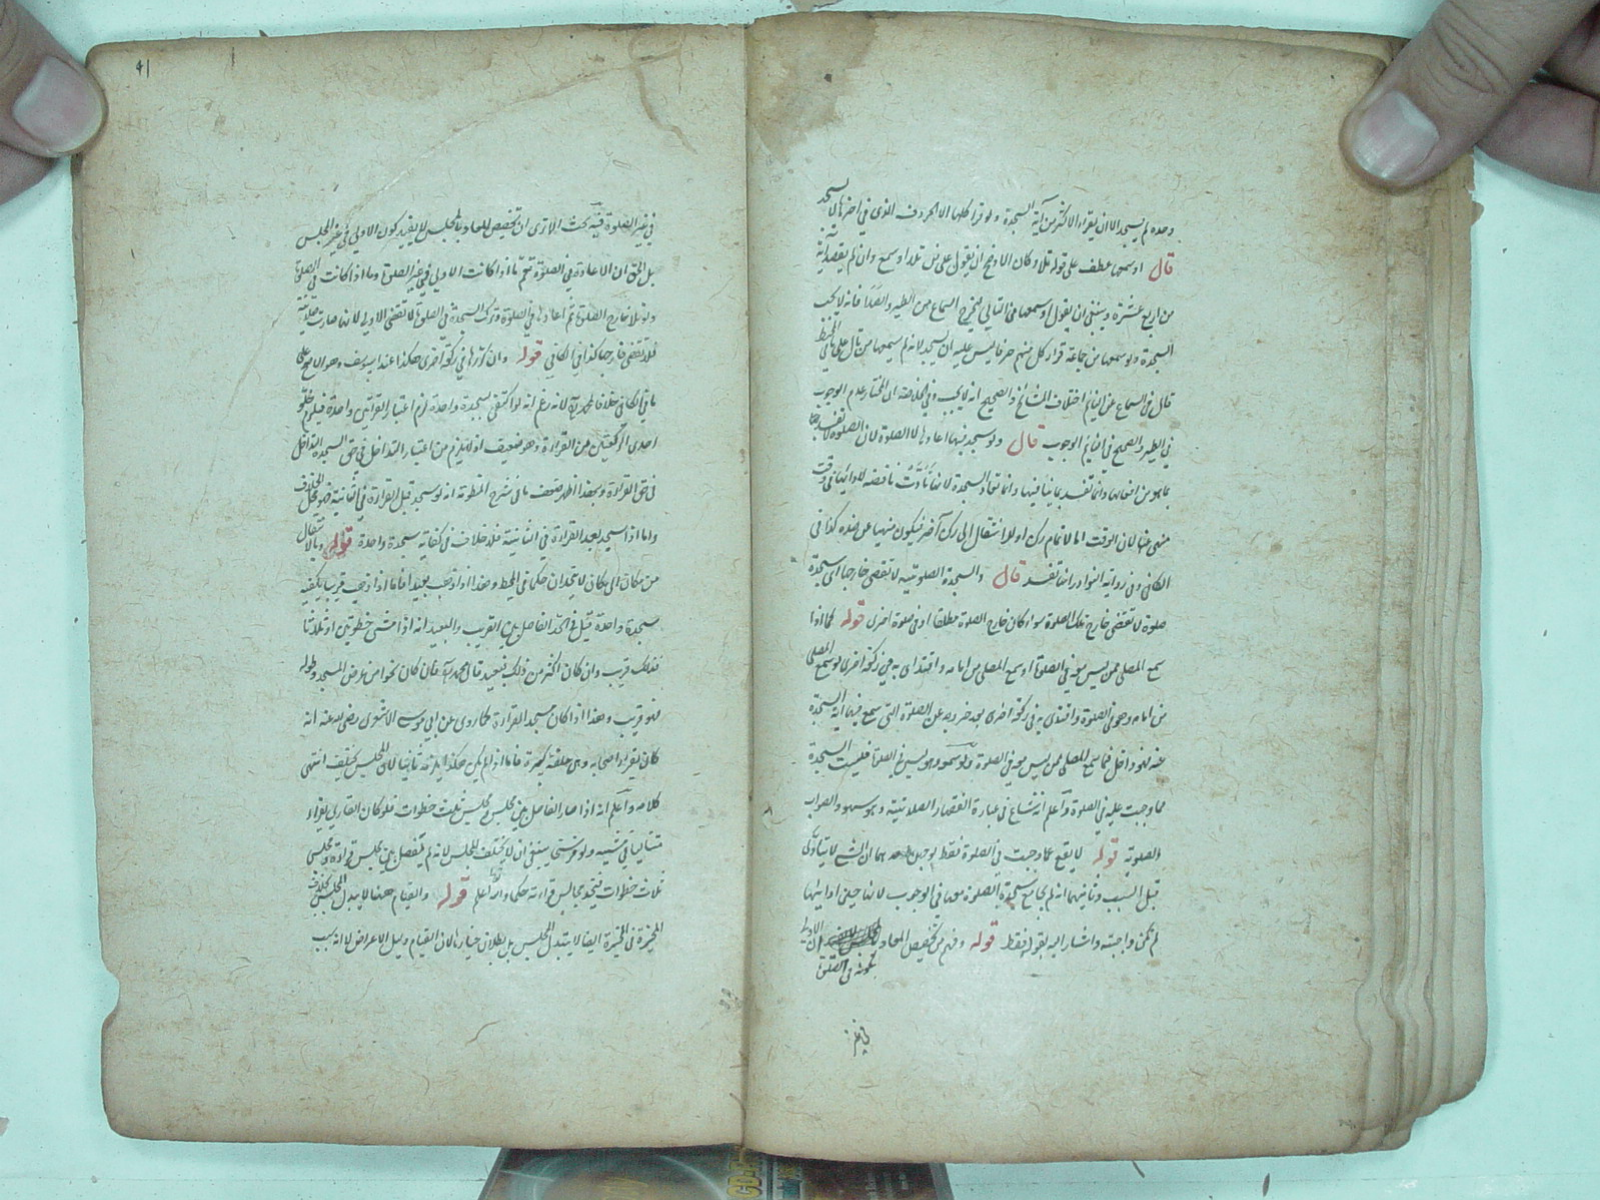 وحده لم يسجد الا ان يقرأ الاكثر من آية السجدة ولو قرأ كلها الا الحرف الذي في اخرها لا يسجد
قال او سمعها عطف على قوله تلا وكان الاوضح ان يقول على من تلا او سمع وان لم يقصد آية
من اربع عشرة وينبغي ان يقول او سمعها من التالي ليخرج السماع من الطير والصدا فانه لا يجب
السجدة ولو سمعها من جماعة قرأ كل منهم حرفا ليس عليه ان يسجد لانه لم يسمعها من تال
قال في السماع عن النائم اختلاف المشايخ والصحيح انه لا يجب وفي ان المختار عدم الوجوب
في الطير والصحيح في النائم الوجوب قال ولو سجد فيها اعادها لا الصلوة لان الصلوة لا تفسد
بما هو من افعالها وانما تفسد بما ينافيها وانما تعاد السجدة لانها ناقصة
منهي عنها لان الوقت اما لاتمام ركن او للانتقال الى ركن آخر فيكون منهيا عن ضده كذا في
الكافي وفي رواية النوادر انها تفسد قال والسجدة الصلوتية لا تقضى خارجها اي سجدة
صلوة لا تقضى خارج تلك الصلوة سواء كان خارج الصلوة مطلقا او في صلوة اخرى قوله كما اذا
سمع المصلي ممن ليس معه في الصلوة او سمع المصلي من امامه واقتدى به في ركعة اخرى او سمع المصلي
من امام وهو في الصلوة واقتدى به في ركعة اخرى بعد خروجه عن الصلوة التي سمع فيها آية السجدة
عنه فهو داخل فيما سمع المصلي ممن ليس معه في الصلوة ولو سمعه وهو ليس في الصلوة فليست السجدة
مما وجبت عليه في الصلوة واعلم انه شاع في عبارة الفقهاء الصلاتية وهو سهو والصواب
الصلوية قوله لا يقع عما وجبت في الصلوة فقط لوجهين احدهما ان الشئ لا يتأدى
قبل السبب وثانيهما انه لم يجامع سجدة الصلوة معها في الوجوب لانها حين ادائها
لم تكن واجبة واشار اليه بقوله فقط قوله وفهم من تخصيص المعاد ان الاولى
كونه في الصلوة
في غير
41
في غير الصلوة فيه بحث الا ترى ان تخصيص المعاد بالمجلس لا يفيد كون الاولى في غير المجلس
بل الحق ان الاعادة في الصلوة تعم ما اذا كانت الاولى في غير الصلوة وما اذا كانت في الصلوة
ولو تلا خارج الصلوة ثم اعادها في الصلوة وترك السجدة في الصلوة لا تقضى الاولى لانها صارت صلاتية
فلا تقضى خارجها كذا في الكافي قوله وان كررها في ركعة اخرى هكذا عند ابي يوسف وهو الاصح على
ما في الكافي خلافا لمحمد لانه زعم انه لو اكتفى بسجدة واحدة لزم اعتبار القرائتين واحدة فيلزم خلو
احدى الركعتين من القراءة وهو ضعيف اذ لا يلزم من اعتبار التداخل في حق السجدة التداخل
في حق القراءة وبهذا ظهر ضعف ما في شرح المنظومة انه لو سجد قبل القراءة في الثانية فهو محل الخلاف
واما اذا سجد بعد القراءة في الثانية فلا خلاف في كفاية سجدة واحدة قوله وبالانتقال
من مكان الى مكان لا يتحدان حكما في المحيط وهذا اذا ذهب بعيدا فاما اذا ذهب قريبا يكفيه
سجدة واحدة قيل في الحد الفاصل بين القريب والبعيد انه اذا مشى خطوتين او ثلاثا
فذلك قريب وان كان اكثر من ذلك فبعيد قال محمد فان كان نحوا من عرض المسجد وطوله
فهو قريب وهذا اذا كان مسجد القراءة كما روي عن ابي موسى الاشعري رضي الله عنه انه
كان يقرأ اصحابه وهي حلقة كبيرة فاما اذا لم يكن هكذا يلزمه ثانيا لان المجلس يختلف انتهى
كلامه واعلم انه اذا صار الفاصل بين مجلس ومجلس ثلث خطوات فلو كان القاري يقرأ
متتاليا في مشيه ولو فرسخي ينبغي ان لا يختلف المجلس لانه لم يفصل بين مجلس قراءة ومجلس
ثلاث خطوات فيتحد مجالس قراءته حكما والله اعلم قوله والقيام ههنا لا يبدل المجلس بخلاف
المخيرة في المخيرة ايضا لا يتبدل المجلس بل بطلان خيارها لان القيام دليل الاعراض لا انه سبب